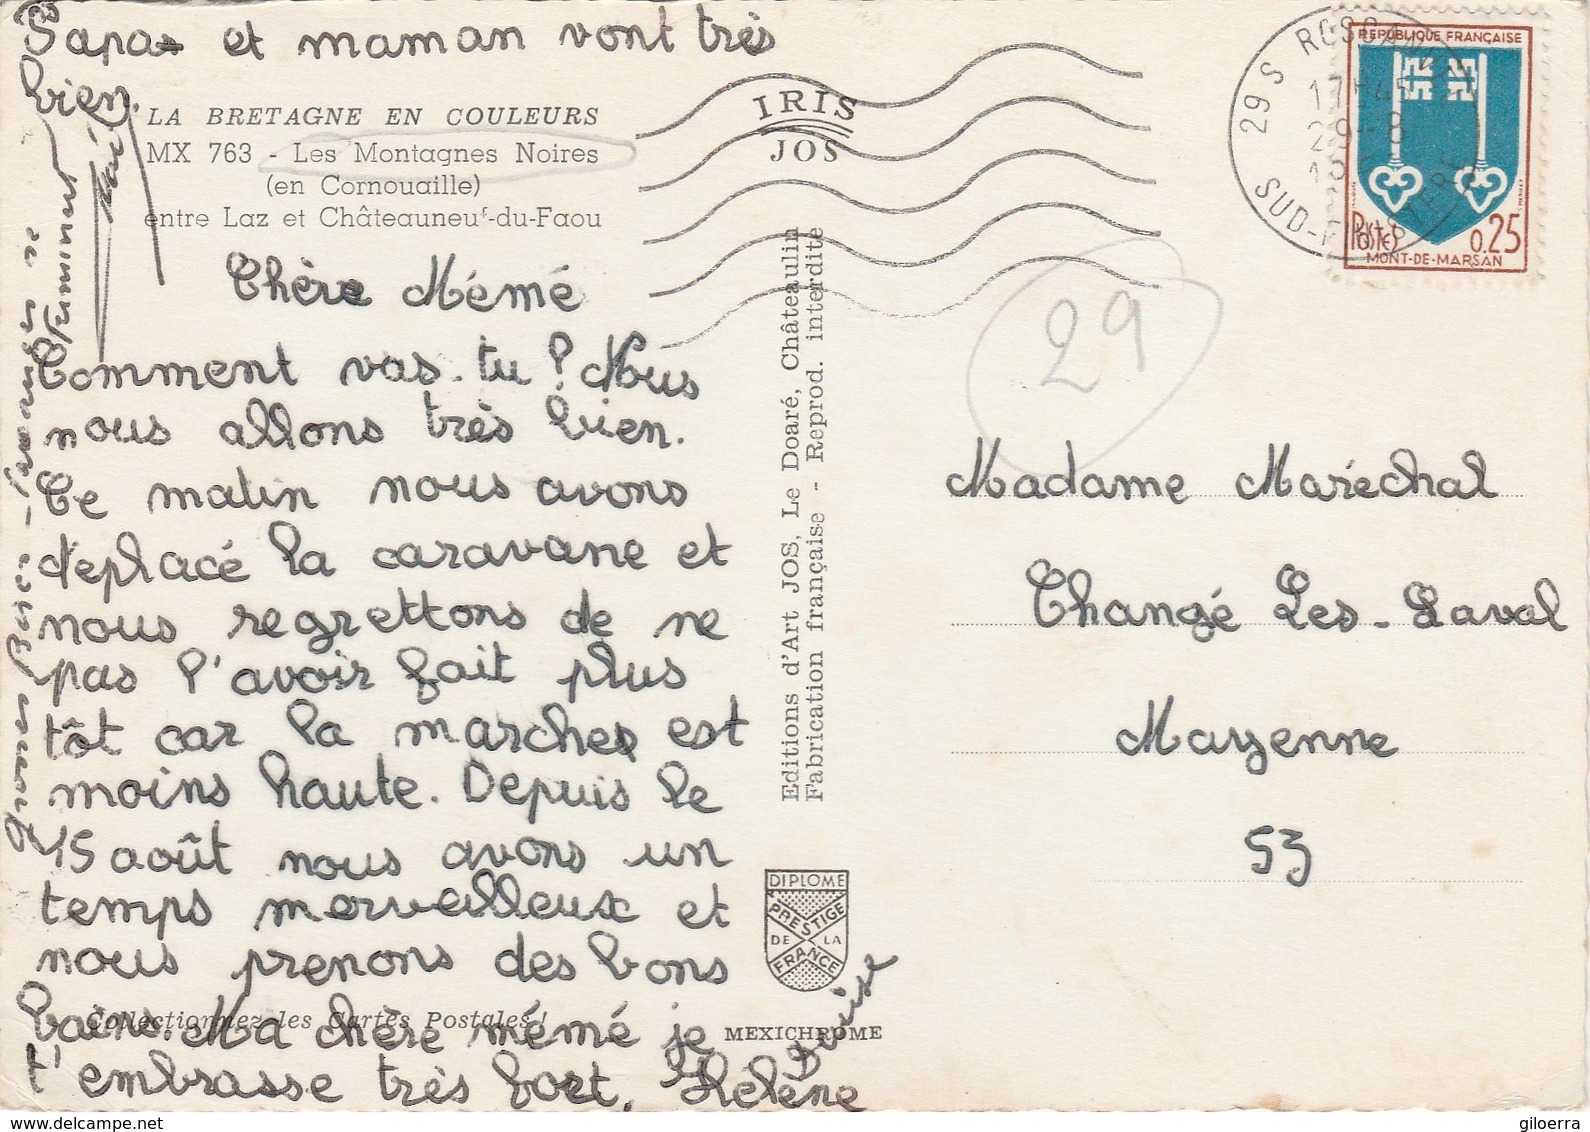 Papa et maman vont très
bien.
LA BRETAGNE EN COULEURS
MX 763 - Les Montagnes Noires
(en Cornouaille)
entre Laz et Châteauneuf-du-Faou
Chère Mémé
Comment vas-tu ? Nous
nous allons très bien.
Ce matin nous avons
déplacé la caravane et
nous regrettons de ne
pas l'avoir fait plus
tôt car la marches est
moins haute. Depuis le
15 août nous avons un
temps merveilleux et
nous prenons des bons
bains. Ma chère mémé je
t'embrasse très fort. Hélène
Denise
Collectionnez les Cartes Postales !
IRIS
JOS
Editions d'Art JOS, Le Doaré, Châteaulin
Fabrication française - Reprod. interdite
DIPLOME
PRESTIGE
DE LA
FRANCE
MEXICHROME
29 S
SUD-FINISTERE
17H45
29-8
REPUBLIQUE FRANÇAISE
POSTES
0,25
MONT-DE-MARSAN
29
Madame Maréchal
Changé Les-Laval
Mayenne
53
www.delcampe.net
giloerra